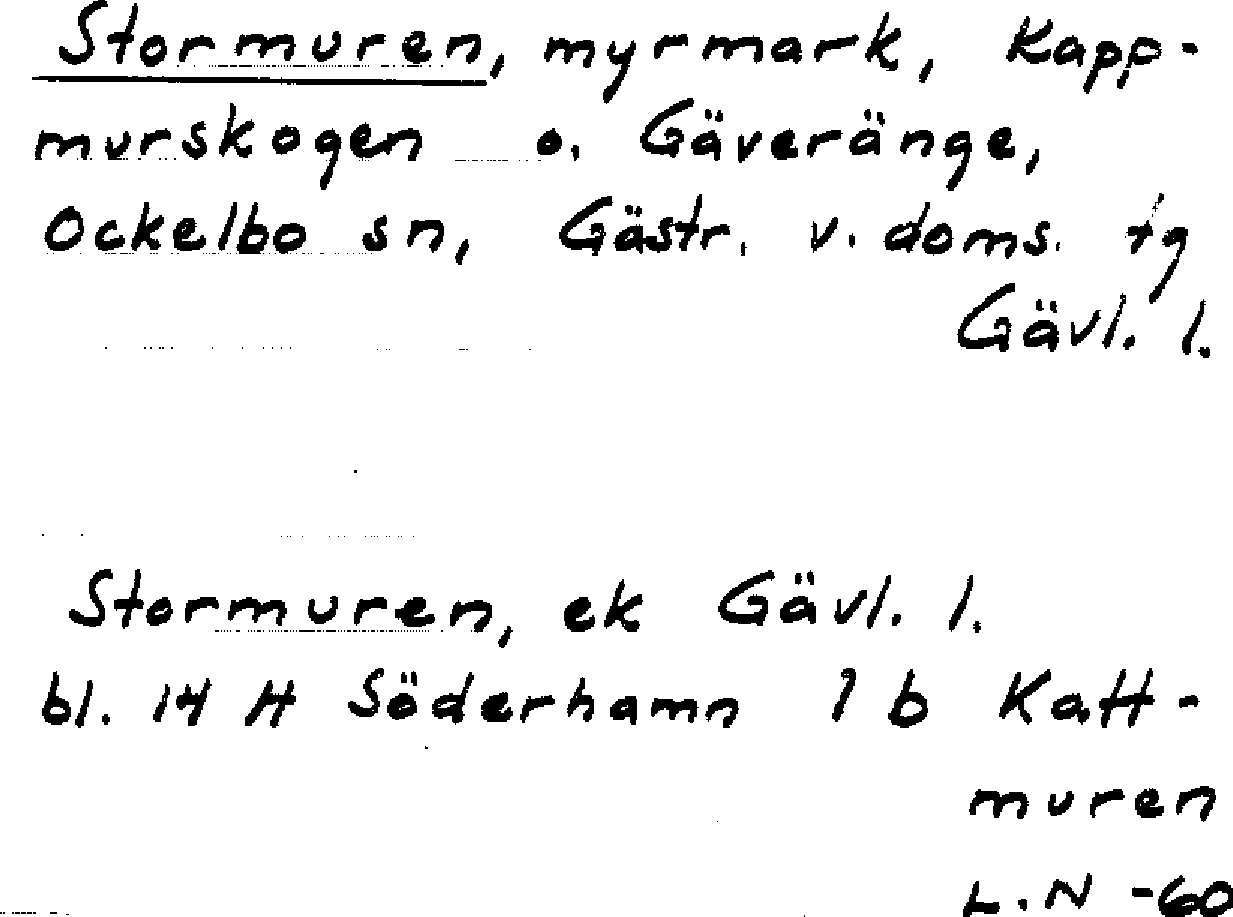 Stormuren, myrmark, Kapp-
murskogen o. Gäveränge,
Ockelbo sn, Gästr. v. doms. tg
Gävl. l.
Stormuren, ek Gävl. l.
bl. 14 H Söderhamn 1 b Katt-
muren
L.N -60